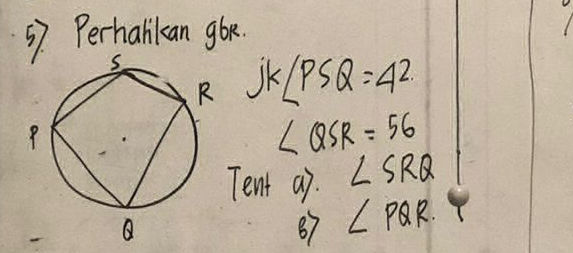 5) Perhatikan gbr.
S
R
P
Q
jk ∠PSQ = 42.
∠ QSR = 56
Tent a). ∠ SRQ
b) ∠ PQR.